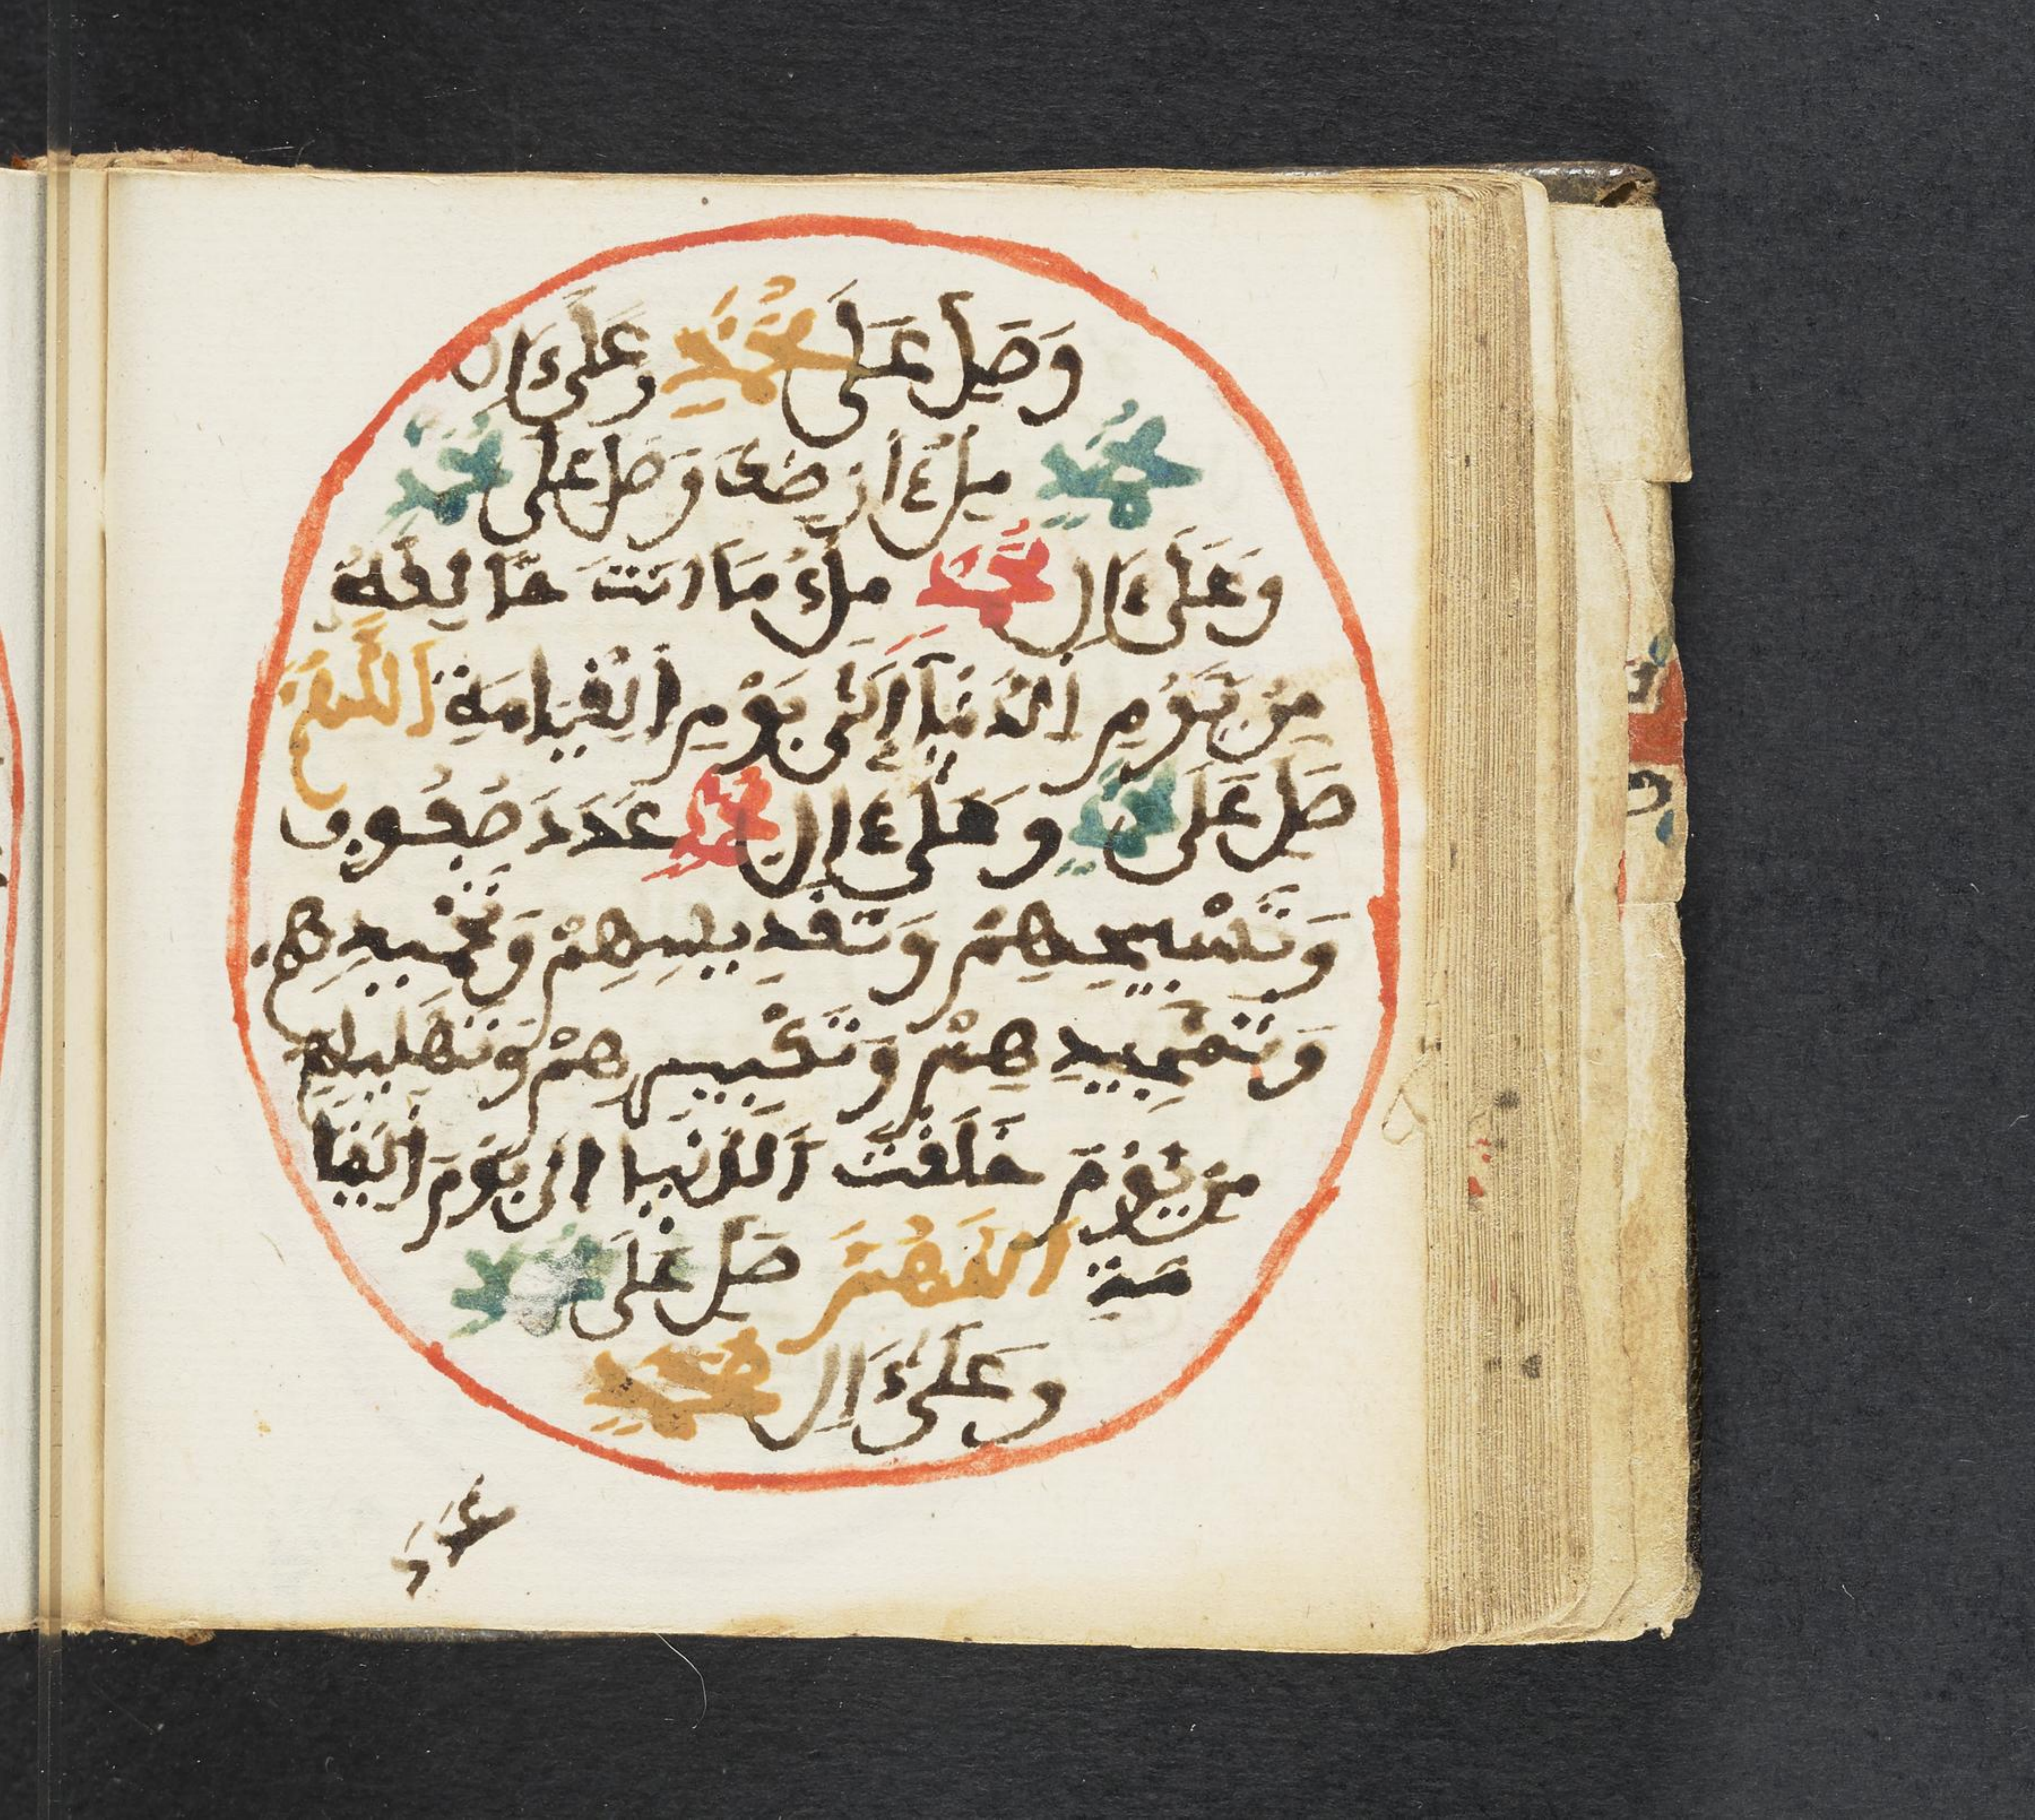 وَصَلِّ عَلَى مُحَمَّدٍ وَعَلَىٰ ءَالِ
مُحَمَّدٍ مِلْءَ ارْضِكَ وَصَلِّ عَلَى مُحَمَّدٍ
وَعَلَىٰ ءَالِ مُحَمَّدٍ مِلْءَ مَا انتَ خَالِقُهُ
مِنْ يَوْمِ الدُّنْيَا إِلَىٰ يَوْمِ الْقِيَامَةِ اللَّهُمَّ
صَلِّ عَلَى مُحَمَّدٍ وَعَلَىٰ ءَالِ مُحَمَّدٍ عَدَدَ صُفُوفِ
وَتَسْبِيحِهِمْ وَتَقْدِيسِهِمْ وَتَحْمِيدِهِمْ
وَتَمْجِيدِهِمْ وَتَكْبِيرِهِمْ وَتَهْلِيلِهِمْ
مِنْ يَوْمَ خَلَقْتَ الدُّنْيَا الى يَوْمَ الْقِيَا
مَةِ اللَّهُمَّ صَلِّ عَلَى مُحَمَّدٍ
وَعَلَىٰ ءَالِ مُحَمَّدٍ
عَدَدَ